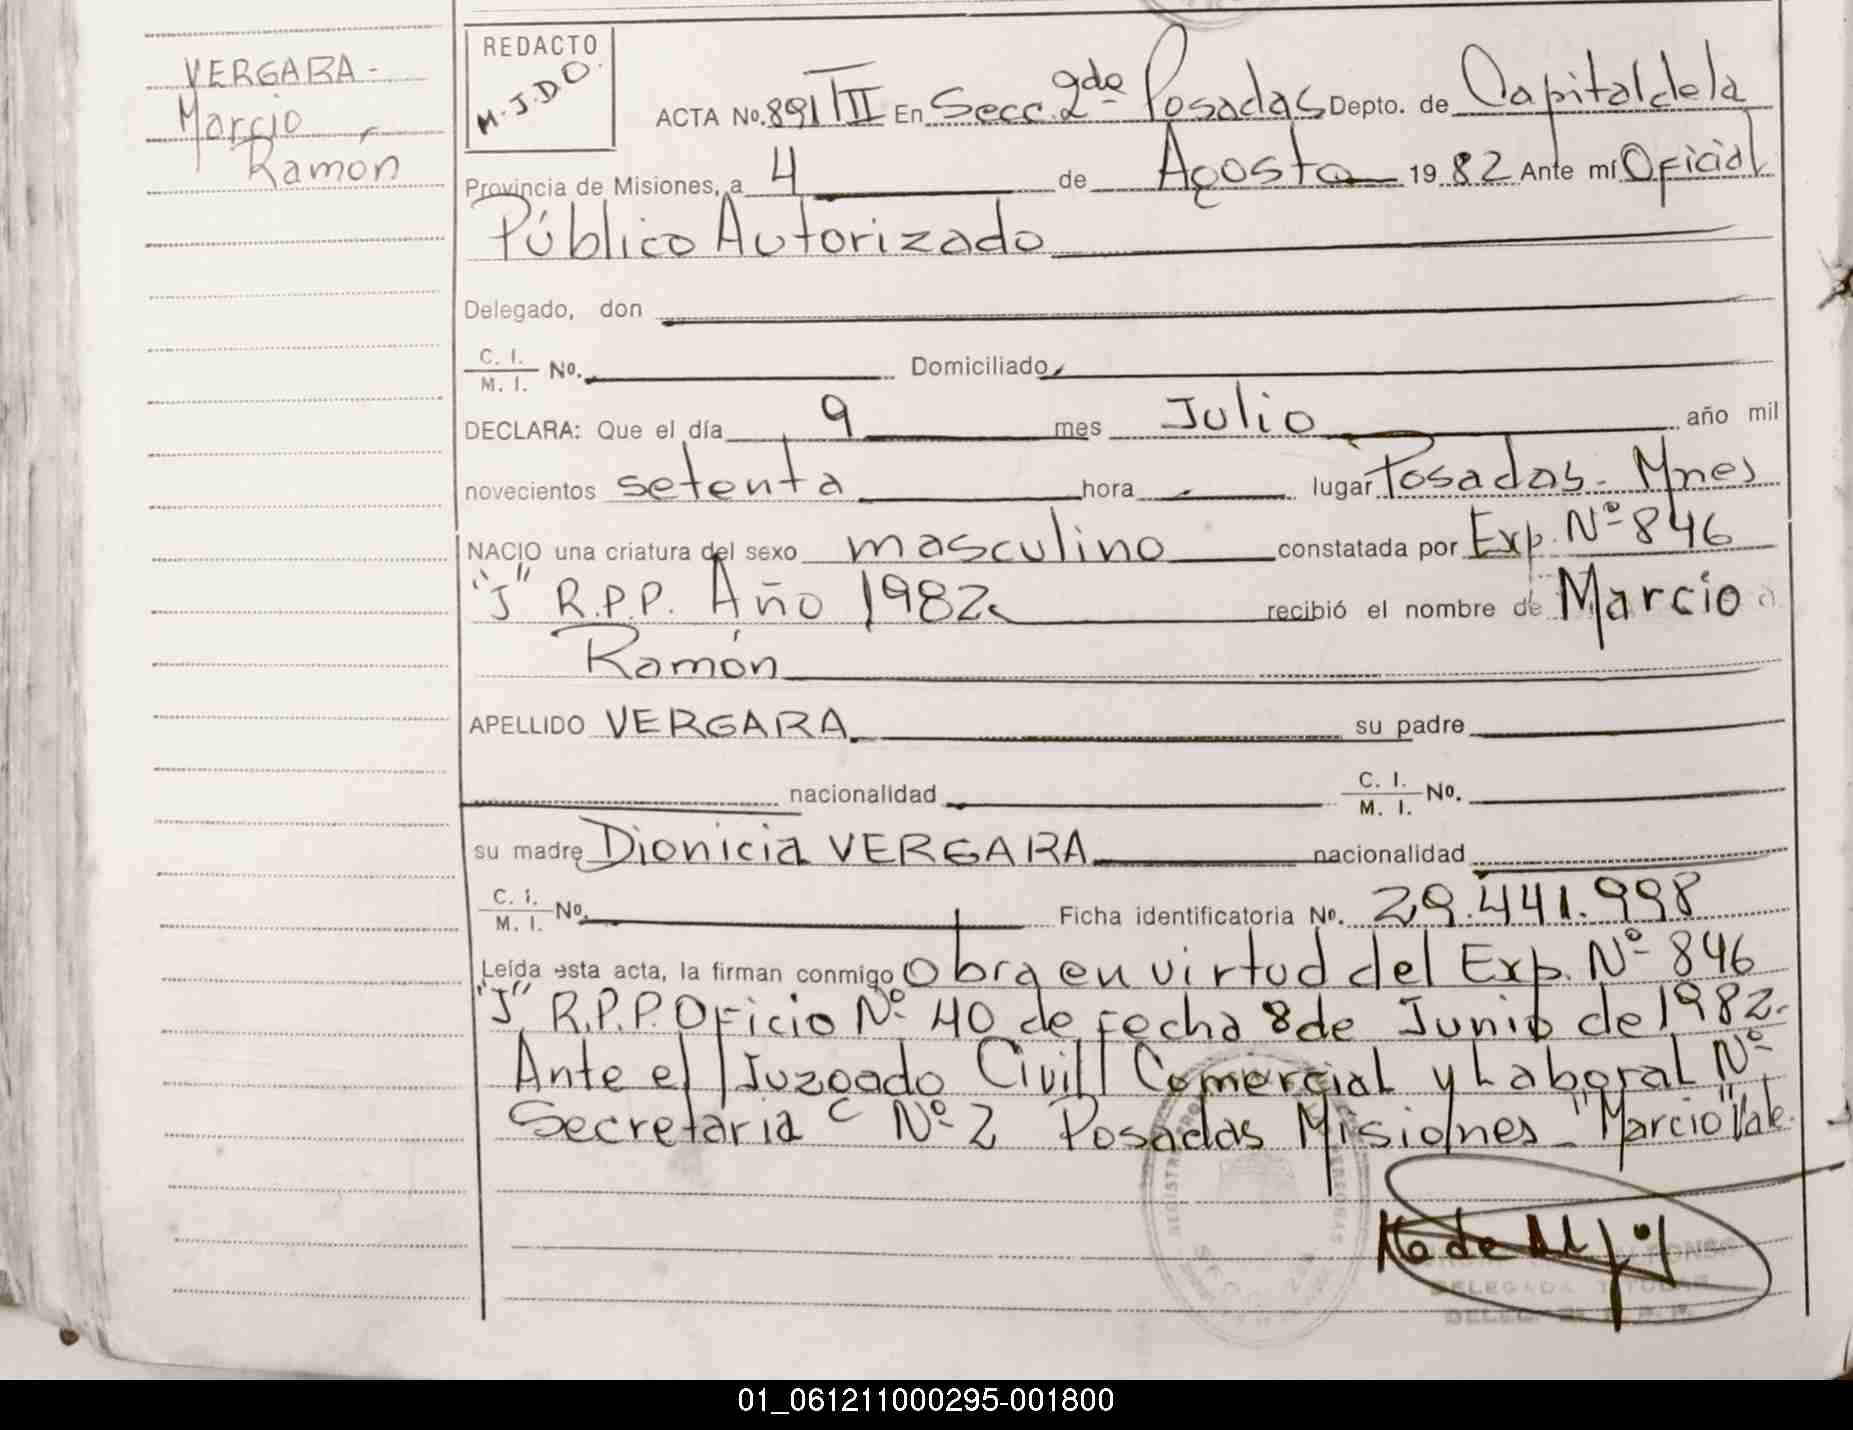 VERGARA -
Marcio
Ramón
REDACTO
M.J.D.O.
ACTA No. 891/II En Secc. 2da Posadas Depto. de Capital de la
Provincia de Misiones, a 4 de Agosto 1982 Ante mí Oficial
Público Autorizado
Delegado, don
C. I. / M. I. No. Domiciliado
DECLARA: Que el día 9 mes Julio año mil
novecientos setenta hora lugar Posadas - Mnes
NACIO una criatura del sexo masculino constatada por Exp. Nº 846
"J" R.P.P. Año 1982 recibió el nombre de Marcio
Ramón
APELLIDO VERGARA su padre
nacionalidad C. I. / M. I. No.
su madre Dionicia VERGARA nacionalidad
C. I. / M. I. No. Ficha identificatoria No. 29.441.998
Leída esta acta, la firman conmigo Obra en virtud del Exp. Nº 846
"J" R.P.P. Oficio Nº 40 de fecha 8 de Junio de 1982.
Ante el Juzgado Civil Comercial y Laboral Nº
Secretaria Nº 2 Posadas Misiones - "Marcio" Vale.
DELEGADA TITULAR
01_061211000295-001800